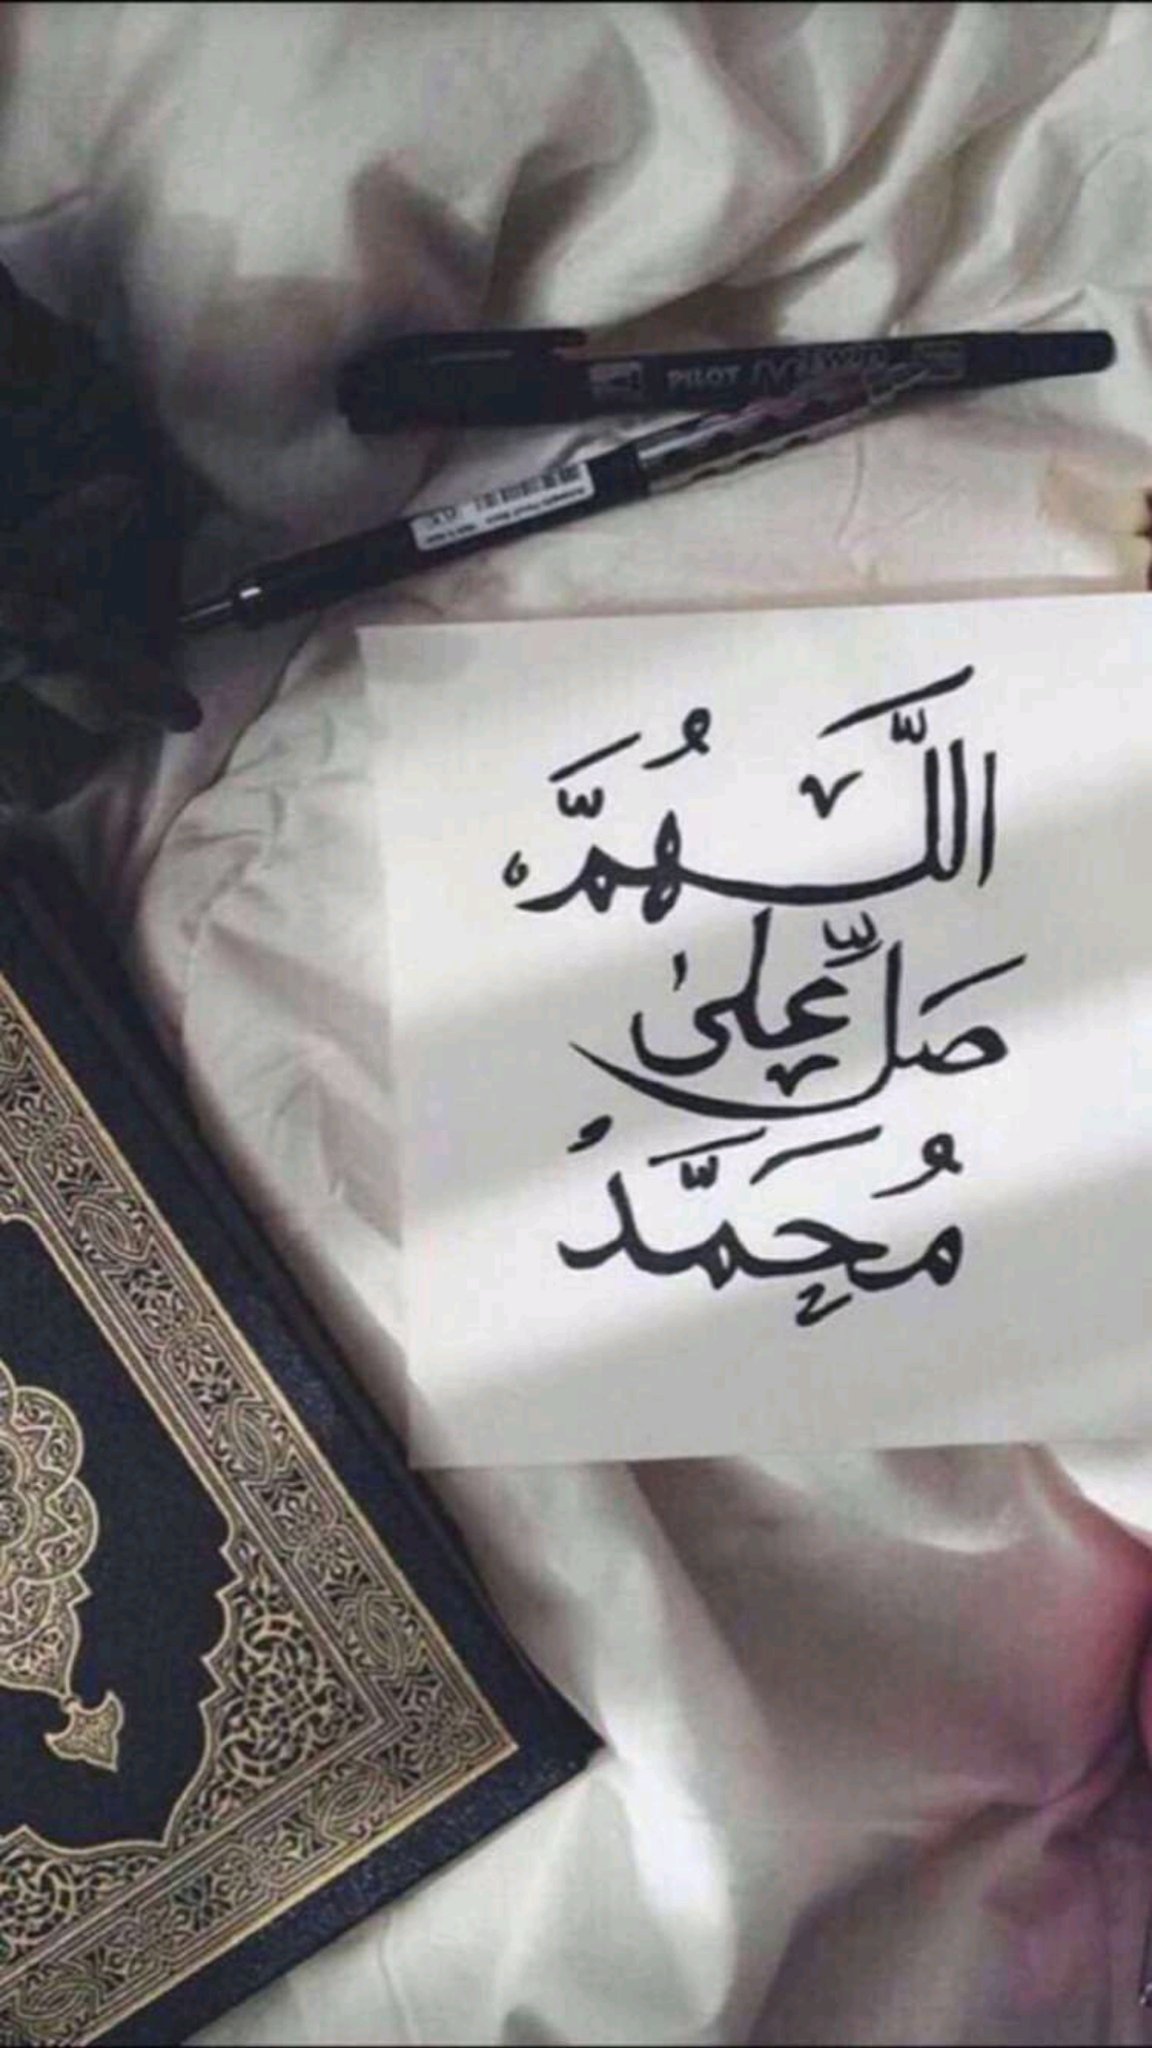 PILOT
اللَّهُمَّ
صَلِّ عَلىٰ
مُحَمَّد